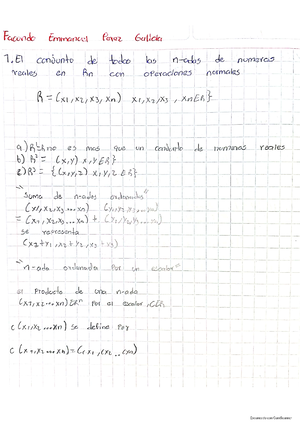 Facundo Emmanuel Perez
1. El conjunto de todas las n-adas de numeros
reales en Rn con operaciones normales
R = (x1, x2, x3, xn) x1, x2, x3, xn ∈ R}
a) no es mas que un conjunto de numeros reales
b) R² = (x, y) x, y ∈ R}
c) R³ = {(x, y, z) x, y, z ∈ R}
"Suma de n-adas ordenadas"
(x1, x2, x3 ... xn) (y1, y2, y3 ... yn)
= (x1, x2, x3 ... xn) + (y1, y2, y3 ... yn)
se representa
"n-ada ordenada por un escalar"
el Producto de una n-ada
(x1, x2 ... xn) ∈ Rⁿ por el escalar, C∈R
c (x1, x2 ... xn) se define por
c (x1, x2 ... xn) = (cx1, cx2 .. cxn)